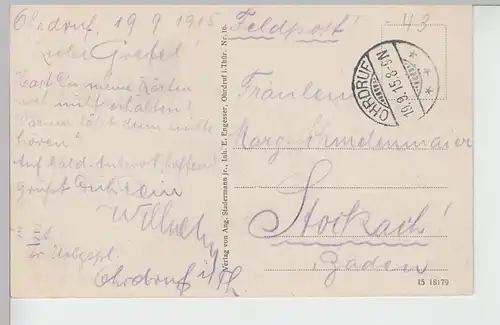 Ohrdruf, 19 9 1915
liebe Gretel!
Hast Du meine Karten
nicht erhalten!
Warum läst denn nichts
hören!
Auf bald. Antwort hoffen
grüßt Dich Dein
Wilhelm
Ohrdruf i/Th.
Verlag von Aug. Stadermann jr., Inh. E. Engesser, Ohrdruf i. Thür. Nr. 16.
Feldpost!
43
OHRDRUF
19.9.15.8-9N
Fräulein
Marg.
Stockach
Baden
15 18179